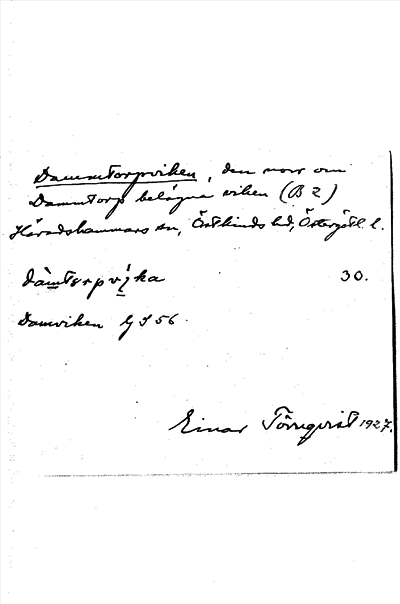 Dammtorpviken, den norr om
Dammtorp belägna viken (B 2)
Häradshammars sn, Östkinds hd, Östergötl. l.
dàmtɷrpvi̊ka 30.
Damviken GS 56.
Einar Törnqvist 1927.